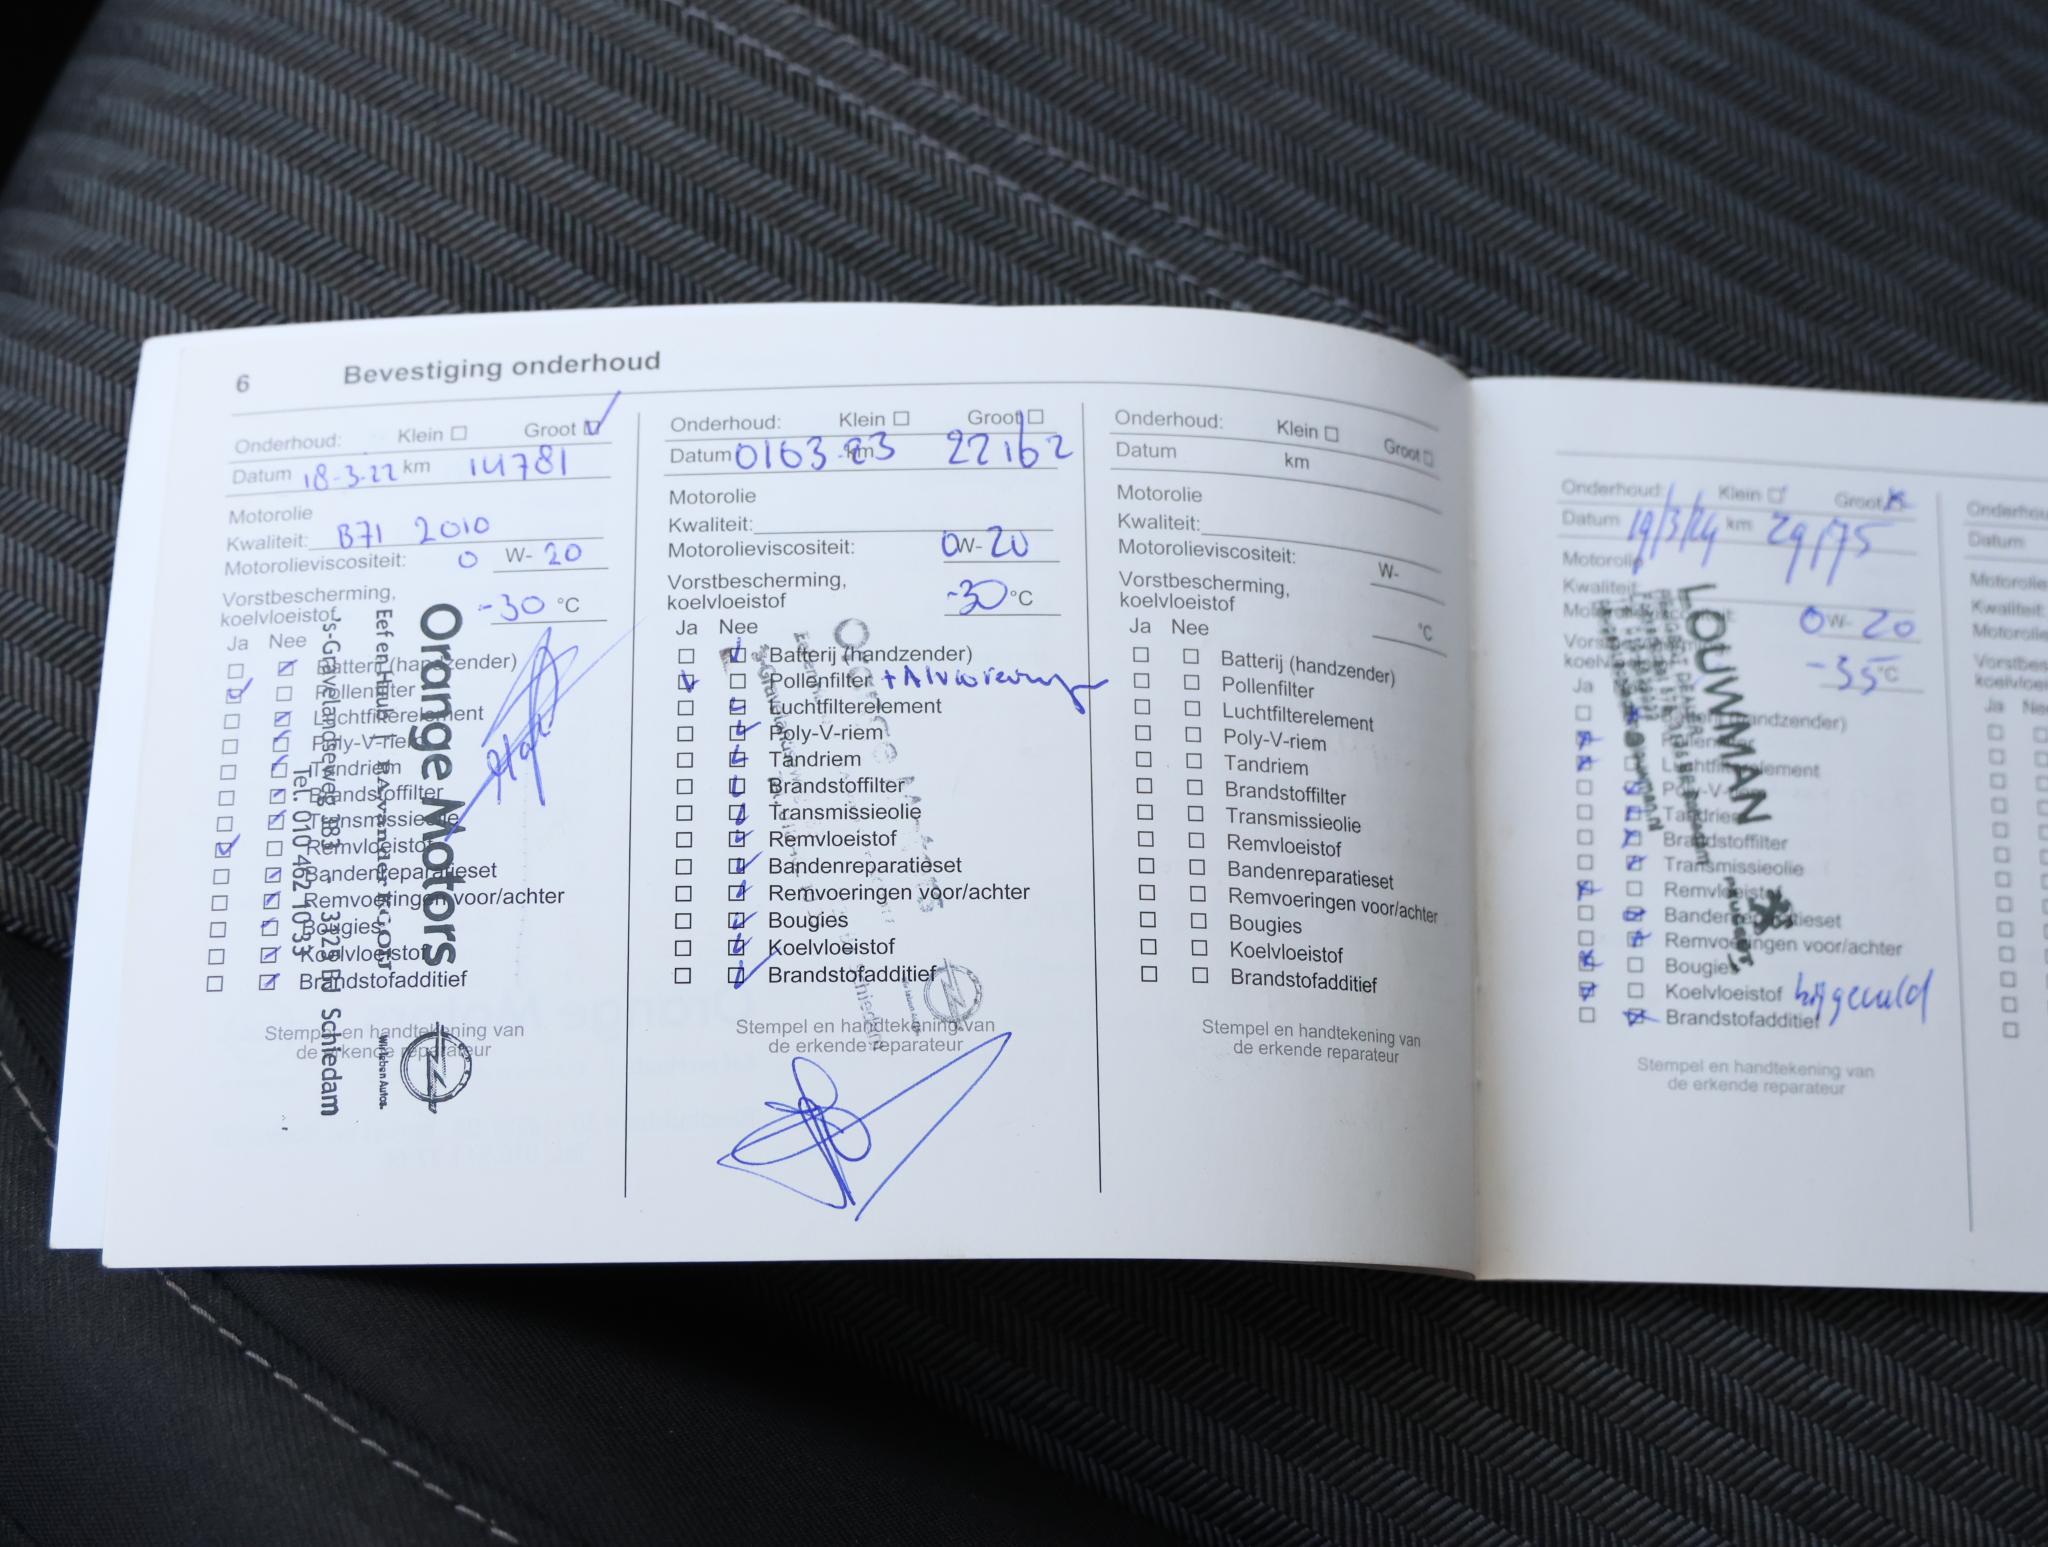 6 Bevestiging onderhoud
Onderhoud: Klein Groot
Datum 18-3-22 km 14781
Motorolie
Kwaliteit: B71 2010
Motorolieviscositeit: 0 W- 20
Vorstbescherming,
koelvloeistof -30 °C
Ja Nee
Batterij (handzender)
Pollenfilter
Luchtfilterelement
Poly-V-riem
Tandriem
Brandstoffilter
Transmissieolie
Remvloeistof
Bandenreparatieset
Remvoeringen voor/achter
Bougies
Koelvloeistof
Brandstofadditief
Stempel en handtekening van
de erkende reparateur
Orange Motors
's-Gravelandseweg 383 - 3125 BJ Schiedam
Tel. 010 462 10 33
Wir leben Autos.
Onderhoud: Klein Groot
Datum 0163-23 km 22162
Motorolie
Kwaliteit:
Motorolieviscositeit: 0W- 20
Vorstbescherming,
koelvloeistof -30 °C
Ja Nee
Batterij (handzender)
Pollenfilter
Luchtfilterelement
Poly-V-riem
Tandriem
Brandstoffilter
Transmissieolie
Remvloeistof
Bandenreparatieset
Remvoeringen voor/achter
Bougies
Koelvloeistof
Brandstofadditief
Stempel en handtekening van
de erkende reparateur
Onderhoud: Klein Groot
Datum km
Motorolie
Kwaliteit:
Motorolieviscositeit: W-
Vorstbescherming,
koelvloeistof °C
Ja Nee
Batterij (handzender)
Pollenfilter
Luchtfilterelement
Poly-V-riem
Tandriem
Brandstoffilter
Transmissieolie
Remvloeistof
Bandenreparatieset
Remvoeringen voor/achter
Bougies
Koelvloeistof
Brandstofadditief
Stempel en handtekening van
de erkende reparateur
Onderhoud: Klein Groot
Datum 19/3/24 km 29175
Motorolie
Kwaliteit:
0W- 20
-35 °C
Ja
Batterij (handzender)
Luchtfilterelement
Poly-V-riem
Tandriem
Brandstoffilter
Transmissieolie
Remvloeistof
Bandenreparatieset
Remvoeringen voor/achter
Bougies
Koelvloeistof bijgevuld
Brandstofadditief
Stempel en handtekening van
de erkende reparateur
LOUWMAN
PEUGEOT
Onderhou
Datum
Motorolie
Kwaliteit:
Motorolie
Vorstbes
koelvloeis
Ja Nee